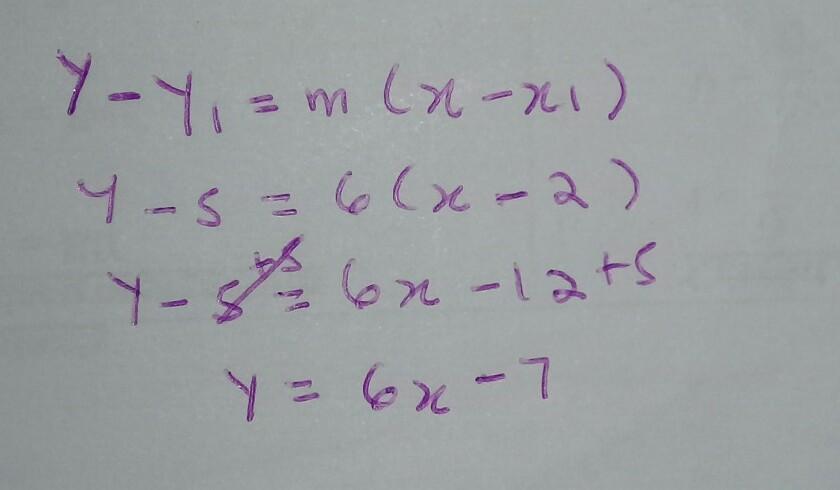 y - y₁ = m (x - x₁)
y - 5 = 6 (x - 2)
y - 5 +5 = 6x - 12 +5
y = 6x - 7